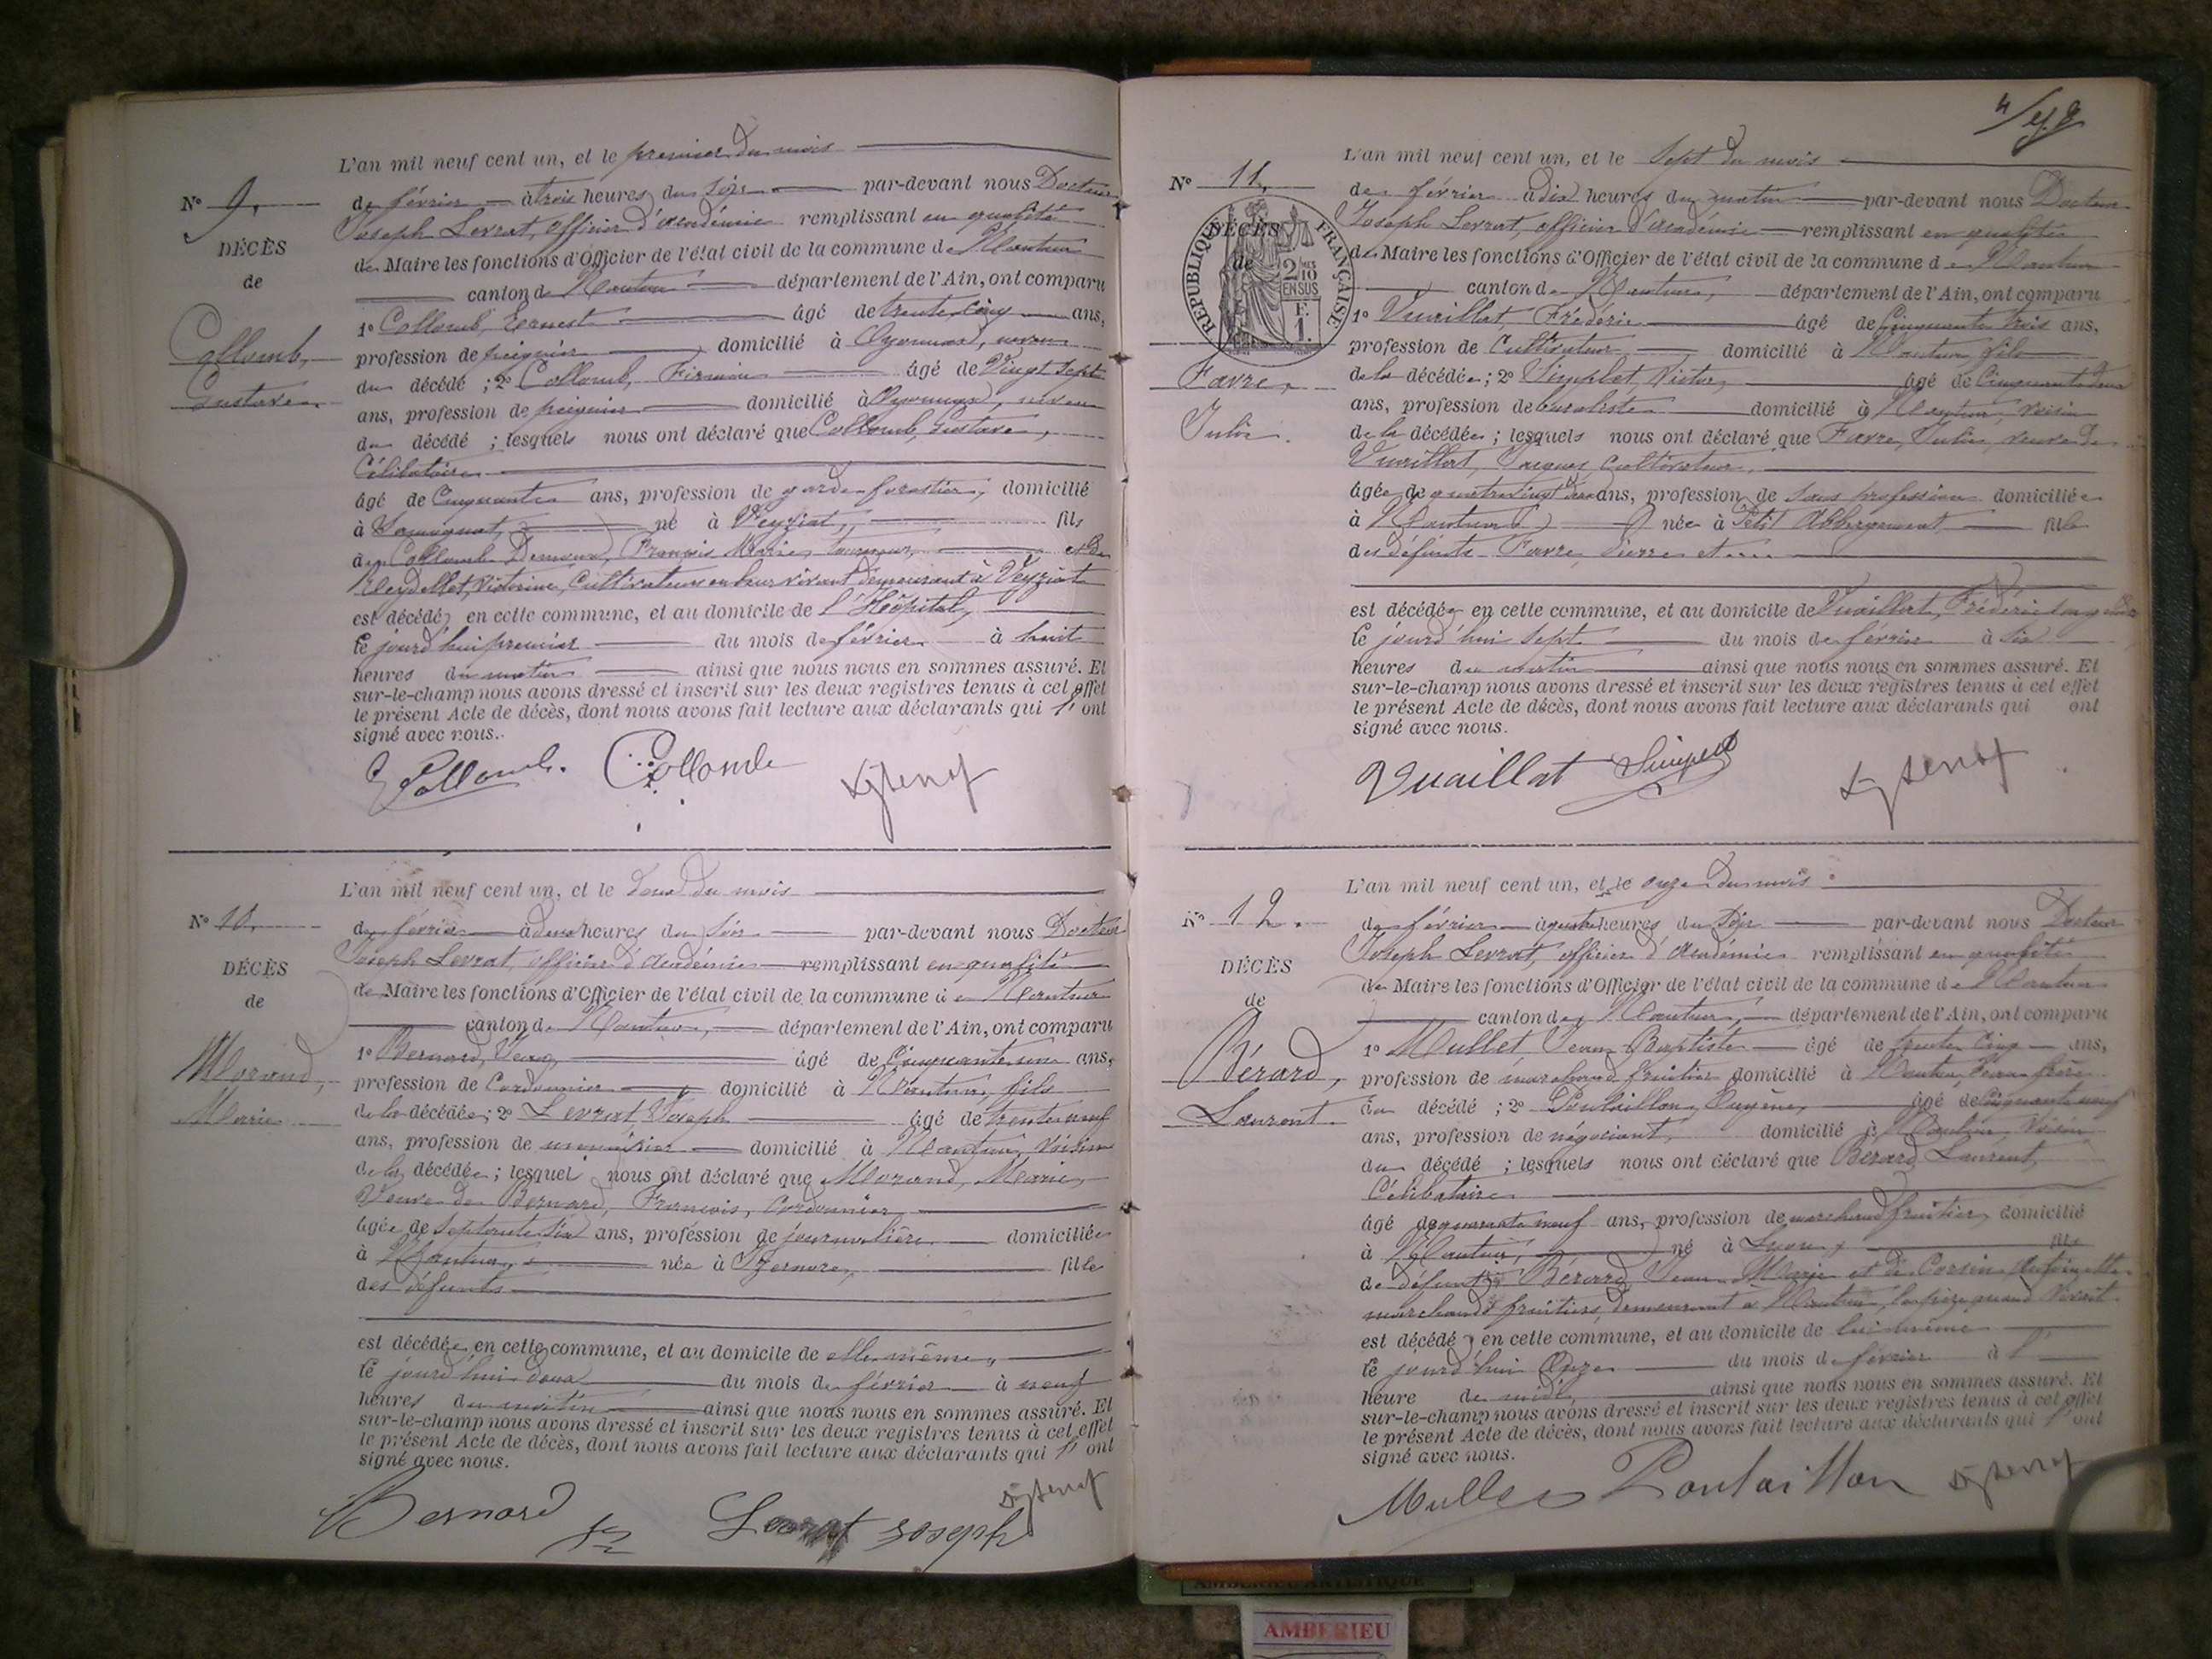 L'an mil neuf cent un, et le premier du mois
de février à trois heures du soir par-devant nous Docteur
Joseph Levrat, officier d'académie remplissant en qualité
de Maire les fonctions d'Officier de l'état civil de la commune de Nantua
canton de Nantua département de l'Ain, ont comparu
1º Collomb, Ernest âgé de trente cinq ans,
profession de peignier domicilié à Oyonnax, neveu
du décédé ; 2º Collomb, Firmin âgé de Vingt Sept
ans, profession de peignier domicilié à Oyonnax, neveu
du décédé ; lesquels nous ont déclaré que Collomb, Gustave,
Célibataire
âgé de Cinquante ans, profession de garde forestier, domicilié
à Samognat, né à Veyziat, fils
de Collomb François Marie, tourneur, et de
Reydellet, Victorine, Cultivateurs en leur vivant demeurant à Veyziat
est décédé en cette commune, et au domicile de l'Hôpital,
le jourd'hui premier du mois de février à huit
heures du matin ainsi que nous nous en sommes assuré. Et
sur-le-champ nous avons dressé et inscrit sur les deux registres tenus à cet effet
le présent Acte de décès, dont nous avons fait lecture aux déclarants qui l'ont
signé avec nous.
Nº 9.
DÉCÈS
de
Collomb,
Gustave.
E Collomb. Collomb
L'an mil neuf cent un, et le deux du mois
de février à deux heures du soir par-devant nous Docteur
Joseph Levrat, officier d'académie remplissant en qualité
de Maire les fonctions d'Officier de l'état civil de la commune de Nantua
canton de Nantua, département de l'Ain, ont comparu
1º Bernard, Jean, âgé de Cinquante un ans,
profession de Cordonnier domicilié à Nantua, fils
de la décédée ; 2º Levrat, Joseph âgé de trente neuf
ans, profession de menuisier domicilié à Nantua, Voisin
de la décédée ; lesquels nous ont déclaré que Morand, Marie,
Veuve de Bernard, François, Cordonnier,
âgée de Septante Six ans, profession de journalière domiciliée
à Nantua, née à Izernore, fille
des défunts
est décédée en cette commune, et au domicile de elle même,
le jourd'hui deux du mois de février à neuf
heures du matin ainsi que nous nous en sommes assuré. Et
sur-le-champ nous avons dressé et inscrit sur les deux registres tenus à cet effet
le présent Acte de décès, dont nous avons fait lecture aux déclarants qui l'ont
signé avec nous.
Nº 10.
DÉCÈS
de
Morand,
Marie
Bernard Levrat Joseph
L'an mil neuf cent un, et le Sept du mois
de février à dix heures du matin par-devant nous Docteur
Joseph Levrat, officier d'académie remplissant en qualité
de Maire les fonctions d'Officier de l'état civil de la commune de Nantua
canton de Nantua, département de l'Ain, ont comparu
1º Vuaillat, Frédéric âgé de Cinquante trois ans,
profession de Cultivateur domicilié à Nantua, fils
de la décédée ; 2º Simplet, Victor, âgé de Cinquante deux
ans, profession de buraliste domicilié à Nantua, Voisin
de la décédée ; lesquels nous ont déclaré que Favre, Julie, veuve de
Vuaillat, Jacques, Cultivateur,
âgée de quatre vingt ans, profession de Sans profession domiciliée
à Nantua née à Petit Abbergement fille
des défunts Favre, Pierre et
est décédée en cette commune, et au domicile de Vuaillat, Frédéric
le jourd'hui Sept du mois de février à Six
heures du matin ainsi que nous nous en sommes assuré. Et
sur-le-champ nous avons dressé et inscrit sur les deux registres tenus à cet effet
le présent Acte de décès, dont nous avons fait lecture aux déclarants qui ont
signé avec nous.
Nº 11.
DÉCÈS
de
RÉPUBLIQUE FRANÇAISE
2 MES 10
EN SUS
F.
1.
Favre,
Julie.
Vuaillat Simplet
L'an mil neuf cent un, et le onze du mois
de février à quatre heures du Soir par-devant nous Docteur
Joseph Levrat, officier d'académie remplissant en qualité
de Maire les fonctions d'Officier de l'état civil de la commune de Nantua
canton de Nantua, département de l'Ain, ont comparu
1º Mullet, Jean Baptiste âgé de trente Cinq ans,
profession de marchand fruitier domicilié à Nantua, beau frère
du décédé ; 2º Poulaillon, Eugène, âgé de Cinquante neuf
ans, profession de négociant, domicilié à Nantua, Voisin
du décédé ; lesquels nous ont déclaré que Bérard Laurent,
Célibataire
âgé de quarante neuf ans, profession de marchand fruitier, domicilié
à Nantua, né à Lyon, fils
de Bérard, Jean Marie et de Corsin Antoinette
marchands fruitiers, demeurant à Nantua, le père quand vivait
est décédé en cette commune, et au domicile de lui même
le jourd'hui Onze du mois de février à 1
heure de midi, ainsi que nous nous en sommes assuré. Et
sur-le-champ nous avons dressé et inscrit sur les deux registres tenus à cet effet
le présent Acte de décès, dont nous avons fait lecture aux déclarants qui l'ont
signé avec nous.
Nº 12.
DÉCÈS
de
Bérard,
Laurent
Mullet Poulaillon
AMBERIEU